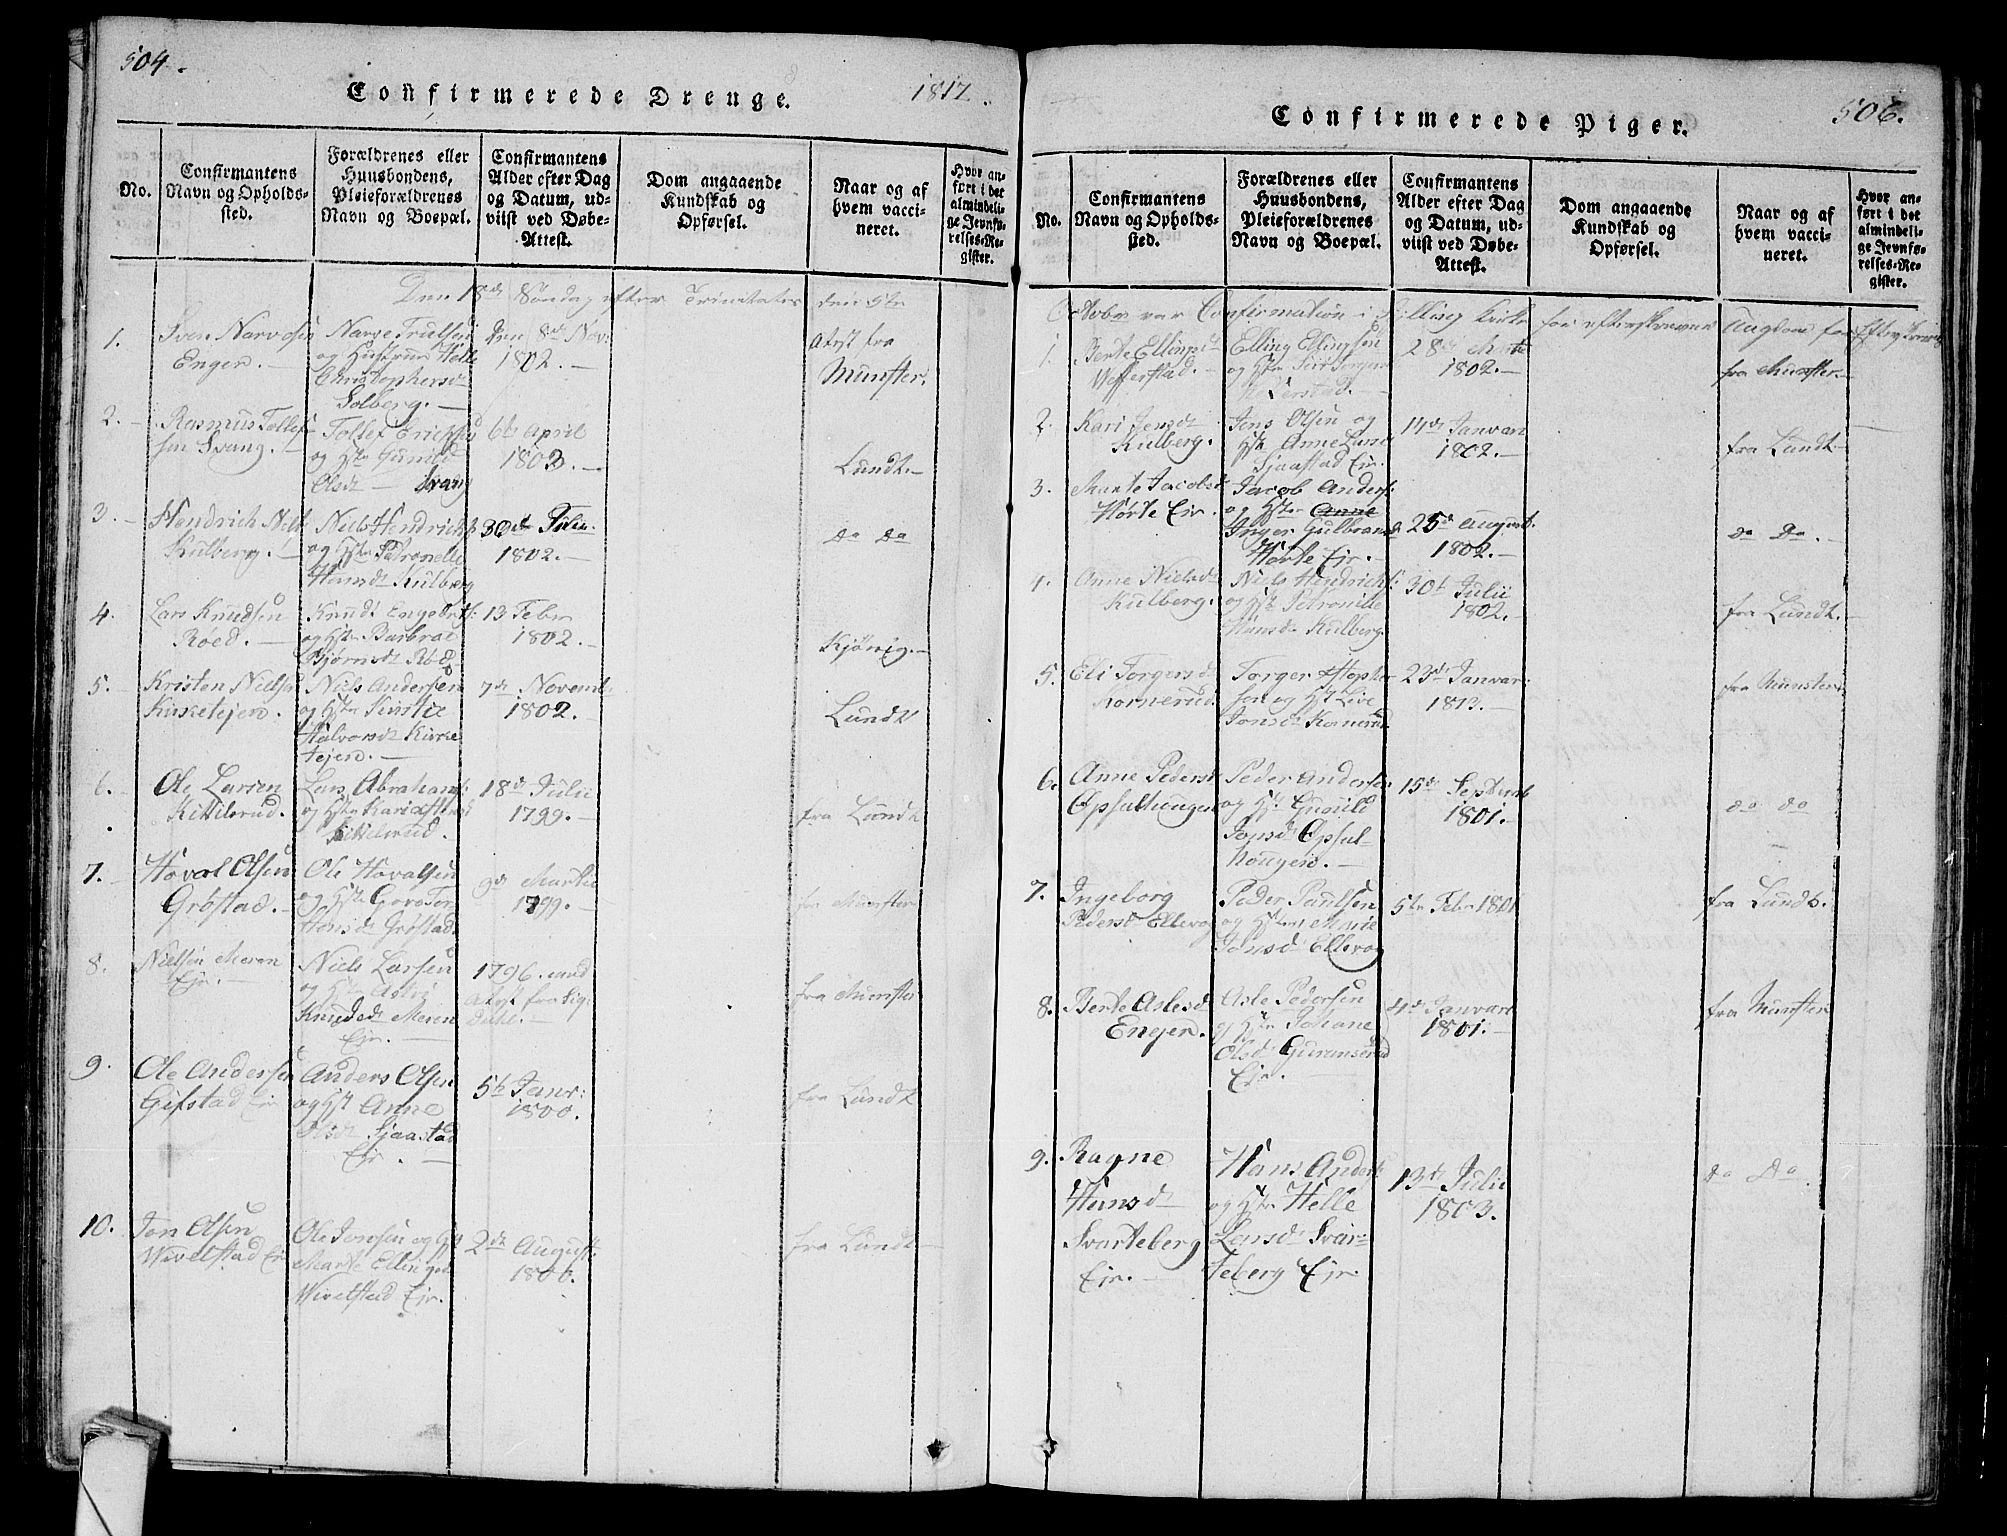 504.
Confirmerede Drenge.
1817.
No.
Confirmantens
Navn og Opholds-
sted.
Forældrenes eller
Huusbondens,
Pleieforældrenes
Navn og Boepæl.
Confirmantens
Alder efter Dag
og Datum, ud-
viist ved Døbe-
Attest.
Dom angaaende
Kundskab og
Opførsel.
Naar og af
hvem vacci-
neret.
Hvor an-
ført i det
almindeli-
ge Jevnfø-
relses-Re-
gister.
Den 18de Søndag efter Trinitates den 5te
1.
Sven Narvesen
Enger.
Narve Trulsen
og Hustrue Helle
Christophersdt
Solberg.
den 8de Nov:
1802.
Atest fra
Munster.
2.
Rasmus Tollef
sen Svang.
Tollef Erichsen
og Hst Gunild
Olsdt Svang
6te April
1803.
Lundt.
3.
Hendrich Niels
Kulberg.
Niels Hendrichs
og Hst Petronelle
Hansdt Kulberg
30te Julii
1802.
do do
4.
Lars Knudsen
Røed.
Knud Engebrets:
og Hst Barbrae
Bjørnsdt Røed
13 Febr
1802.
Kjørvig.
5.
Kristen Nielsen
Kirketejen.
Niels Andersen
og Hst Kirstie
Halvorsdt Kirke
tejen.
7de Novemb:
1802.
Lundt
6.
Ole Larsen
Kittilsrud.
Lars Abrahams:
og Hst Kari
Kittilsrud.
18de Julii
1799.
fra Lundt
7.
Hovel Olsen
Grøstad.
Ole Hovalsen
og Hst Goro Tor
Hansdt Grøstad.
9de Martii
1799.
fra Munster
8.
Nielsen Meren
Ejr.
Niels Larsen
og Hst Astri
Knudsdt Meren
Ejr.
1796.
Atest fra Sig:
dahl.
fra Munster
9.
Ole Andersen
Gifstad Ejr
Anders Olsen
og Hst Anne
Olsdt Sjaastad
Ejr.
5te Janv:
1800.
fra Lundt
10.
Jon Olsen
Wivelstad Ejr
Ole Jonsen og Hst
Marte Ellingsd
Wivelstad Ejr.
2de August:
1800.
fra Lundt
Confirmerede Piger.
506.
No.
Confirmantens
Navn og Opholds-
sted.
Forældrenes eller
Huusbondens,
Pleieforældrenes
Navn og Boepæl.
Confirmantens
Alder efter Dag
og Datum, ud-
viist ved Døbe-
Attest.
Dom angaaende
Kundskab og
Opførsel.
Naar og af
hvem vacci-
neret.
Hvor an-
ført i det
almindeli-
ge Jevnfø-
relses-Re-
gister.
Octobr var Confirmation i Kirke for efterskrevne Ungdom
1.
Berte Ellingsdt
Wefferstad.
Elling Ellingsen
og Hst Siri
28de Marts
1802.
fra Munster.
2.
Kari Jensdt
Kulberg.
Jens Olsen og
Hst Anne
Sjaastad Ejr.
14de Janvari
1802.
fra Lundt
3.
Marte Jacobsd
Horte Ejr.
Jacob Anders:
og Hst Anne
Inger Gulbrans
Horte Ejr.
25de August:
1802.
do do.
4.
Anne Nielsdt
Kulberg.
Niels Hendrichs:
og Hst Petronille
Hansdt Kulberg.
30te Julii
1802.
fra Lundt.
5.
Eli Torgersdt
Kornerud.
Torger
sen og Hst Live
Jonsdt Kornerud.
23de Janvar:
1803.
fra Munster
6.
Anne Pedersdt
Opsalhougen
Peder Andersen
og Hst Gunild
Jonsdt Opsal-
hougen.
15de Septemb
1801.
do do
7.
Ingeborg
Pedersdt Ellevog
Peder Paulsen
og Hst Marie
Jonsdt Ellevog
5te Febr 1801
fra Lundt.
8.
Berte Aslesd
Enger.
Asle Pedersen
og Hst Johane
Olsdt
Ejr.
4de Janvari
1801.
fra Munster
9.
Ragne
Hansdt
Svarteberg
Ejr.
Hans Anders
og Hst Helle
Larsdt Svar-
teberg Ejr.
13de Julii
1803.
do do.